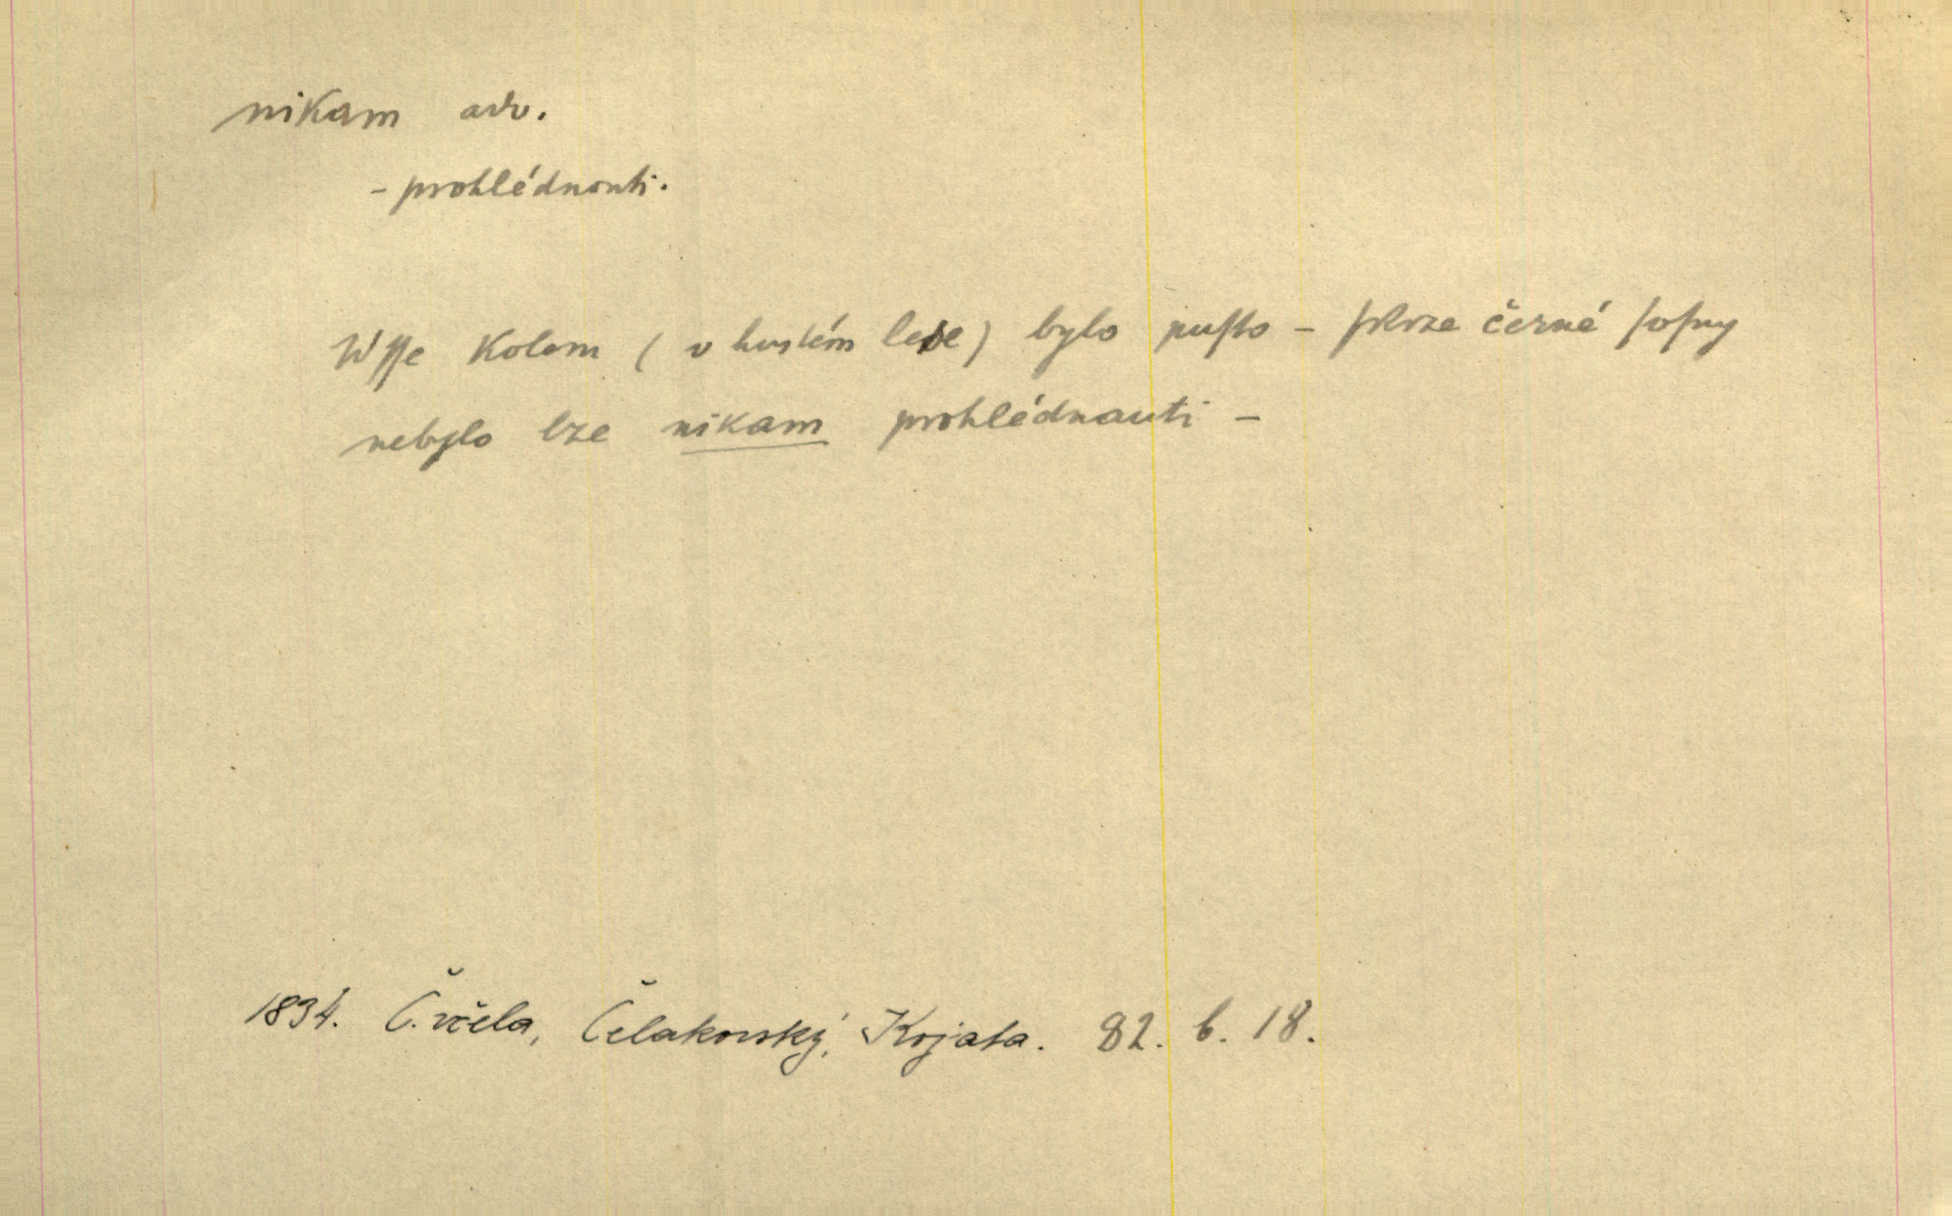 nikam adv.
- prohlédnouti.
Wſſe kolem (v hustém lese) bylo puſto - ſkrze černé ſoſny
nebylo lze nikam prohlédnauti -
1834. Č. včela, Čelakovský, Kojata. 82. b. 18.